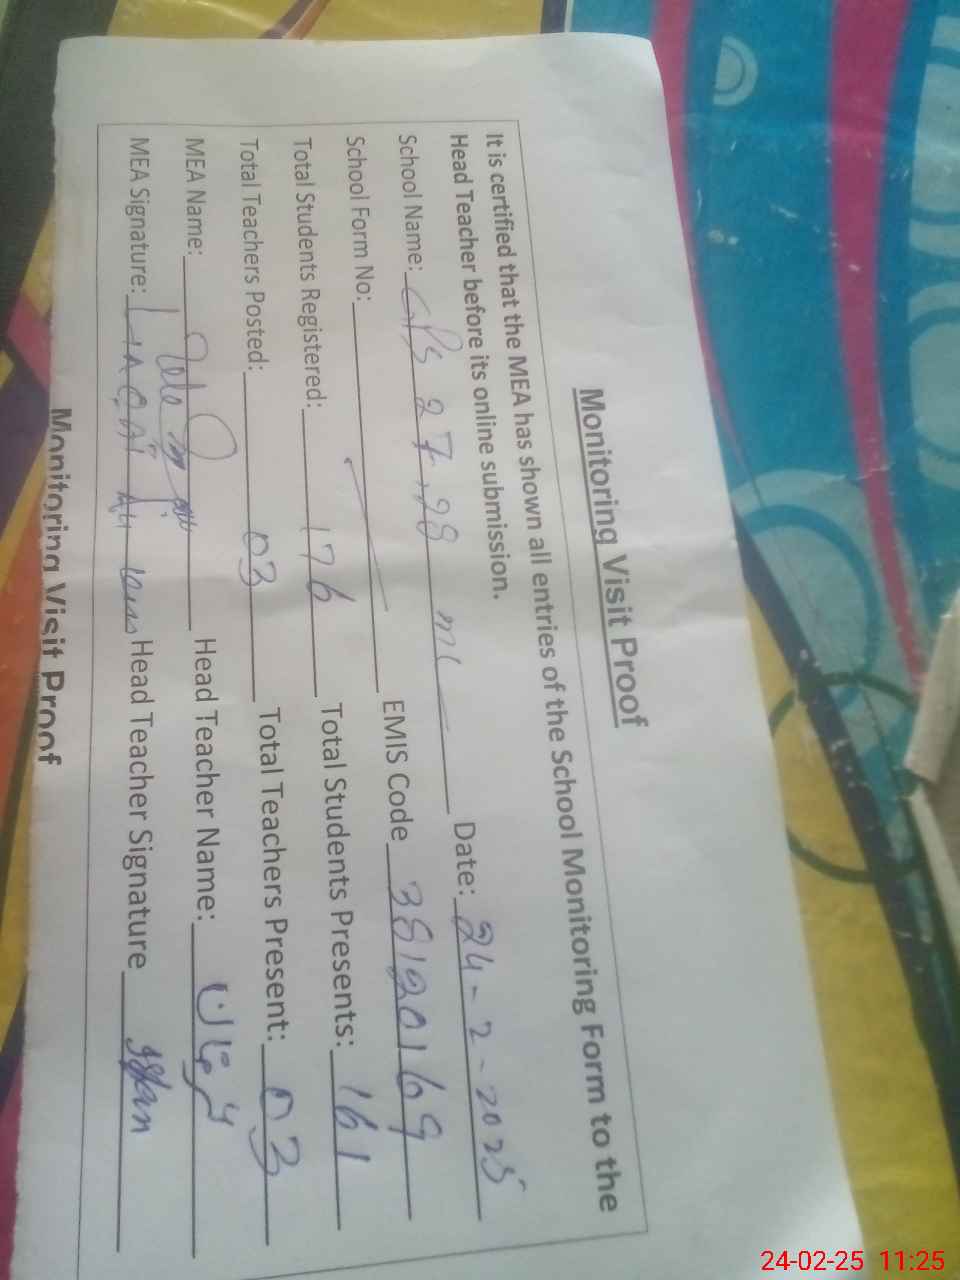 Monitoring Visit Proof
It is certified that the MEA has shown all entries of the School Monitoring Form to the
Head Teacher before its online submission.
School Name: GPS 27.28 Date: 24-2-2025
School Form No: EMIS Code 38120169
Total Students Registered: 176 Total Students Presents: 161
Total Teachers Posted: 03 Total Teachers Present: 03
MEA Name: Head Teacher Name:
MEA Signature: Head Teacher Signature
Monitoring Visit Proof
24-02-25 11:25